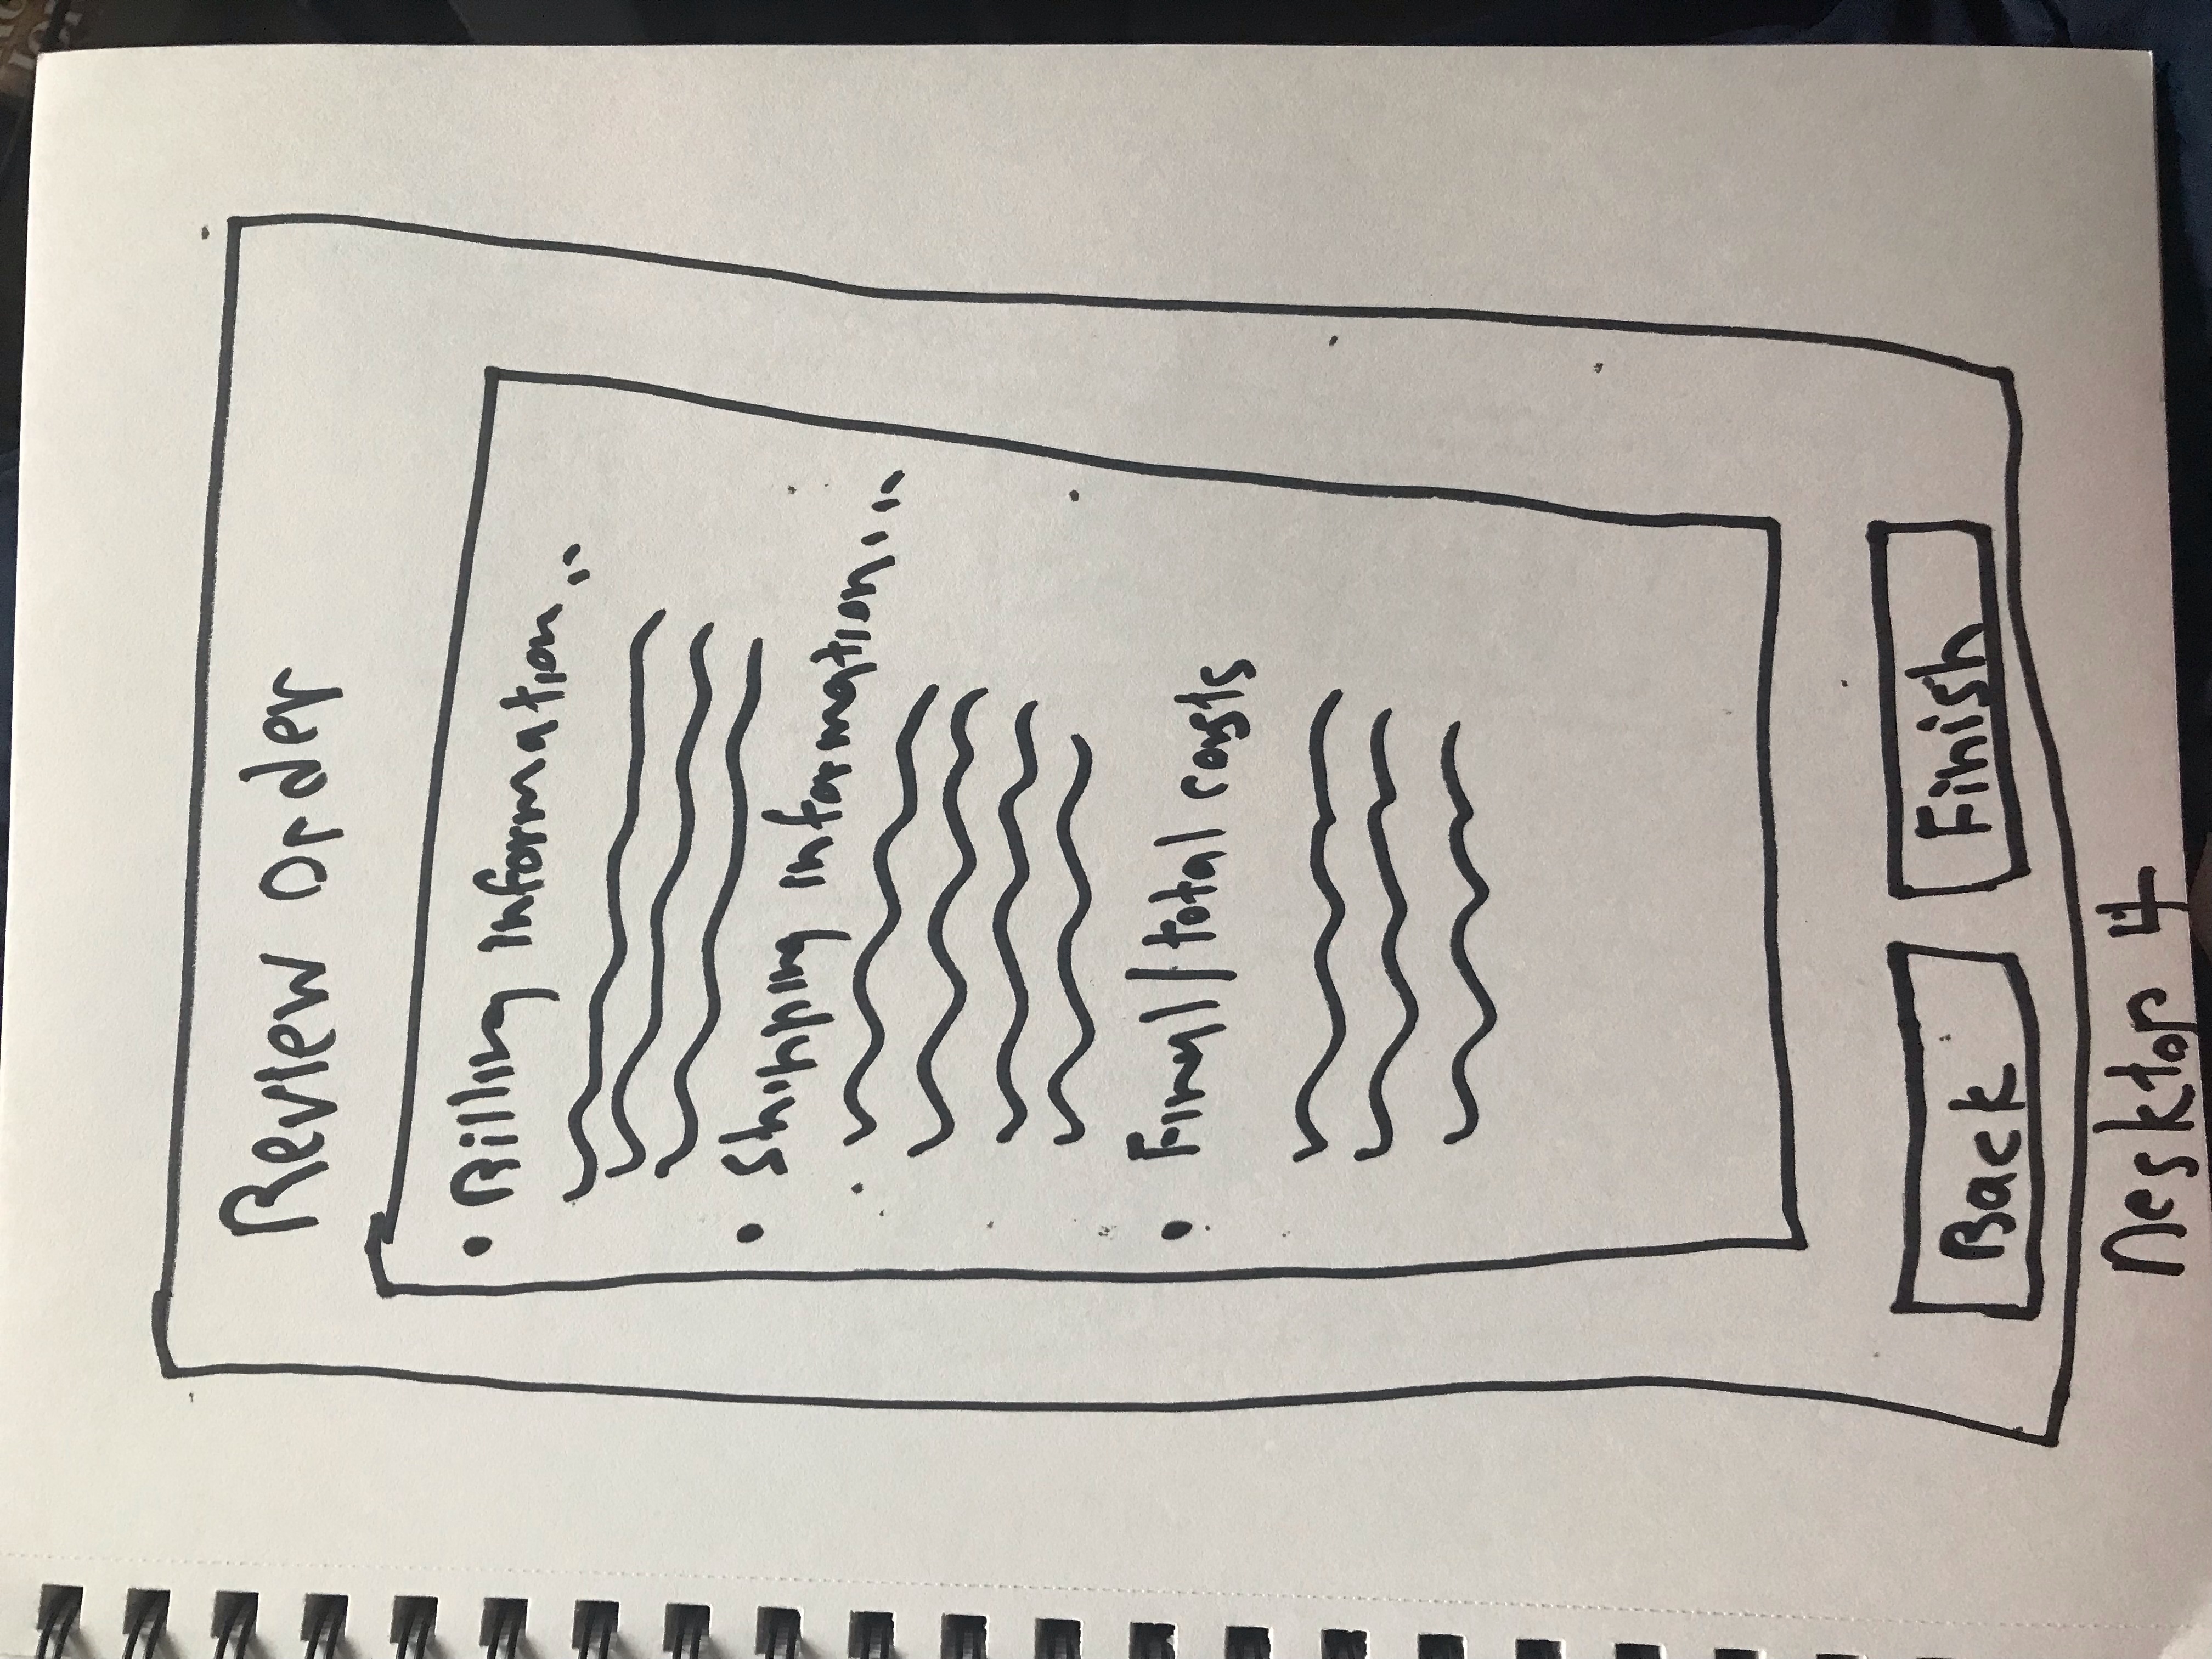 Review Order
• Billing information...
• Shipping information...
• Final/total costs
Back
Finish
Desktop 4